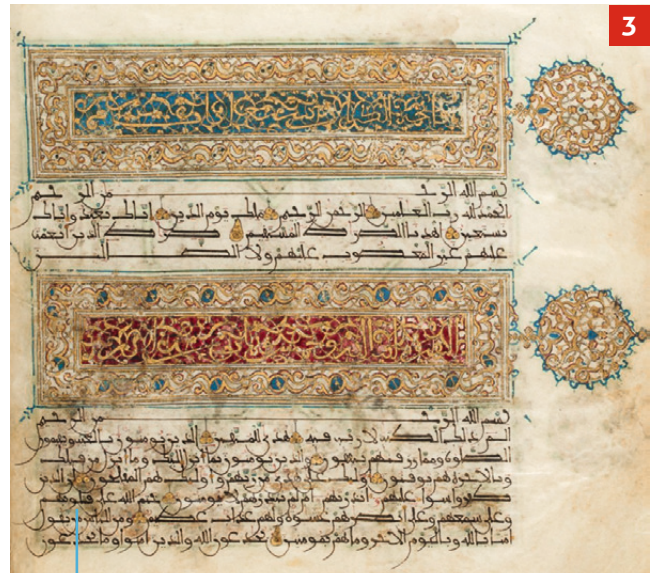 3
بسم الله الرحمن الرحيم
الحمد لله رب العلمين الرحمن الرحيم ملك يوم الدين اياك نعبد واياك
نستعين اهدنا الصراط المستقيم صراط الذين انعمت
عليهم غير المغضوب عليهم ولا الضالين
بسم الله الرحمن الرحيم
الم ذلك الكتب لا ريب فيه هدى للمتقين الذين يومنون بالغيب ويقيمون
الصلوة ومما رزقنهم ينفقون والذين يومنون بما انزل اليك وما انزل من قبلك
وبالاخرة هم يوقنون اولئك على هدى من ربهم واولئك هم المفلحون ان الذين
كفروا سواء عليهم ءانذرتهم ام لم تنذرهم لا يومنون ختم الله على قلوبهم
وعلى سمعهم وعلى ابصرهم غشوة ولهم عذاب عظيم ومن الناس من يقول
امنا بالله وباليوم الاخر وما هم بمومنين يخدعون الله والذين امنوا وما يخدعون